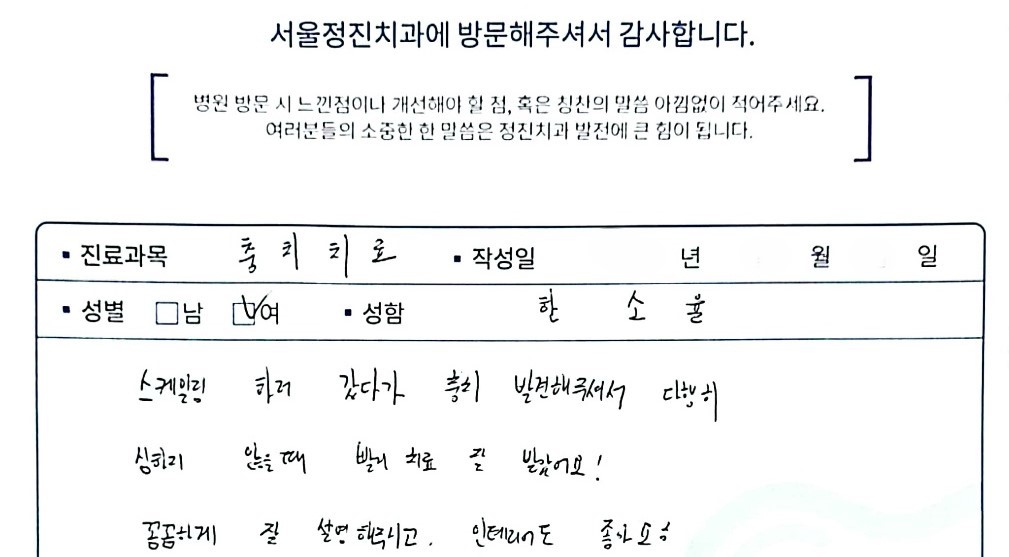 서울정진치과에 방문해주셔서 감사합니다.
병원 방문 시 느낀점이나 개선해야 할 점, 혹은 칭찬의 말씀 아낌없이 적어주세요.
여러분들의 소중한 한 말씀은 정진치과 발전에 큰 힘이 됩니다.
진료과목 충치치료 작성일 년 월 일
성별 남 여 성함 한소율
스케일링 하러 갔다가 충치 발견해주셔서 다행히
심하지 않을때 빨리 치료 잘 받았어요!
꼼꼼하게 잘 설명해주시고. 인테리어도 좋아요!